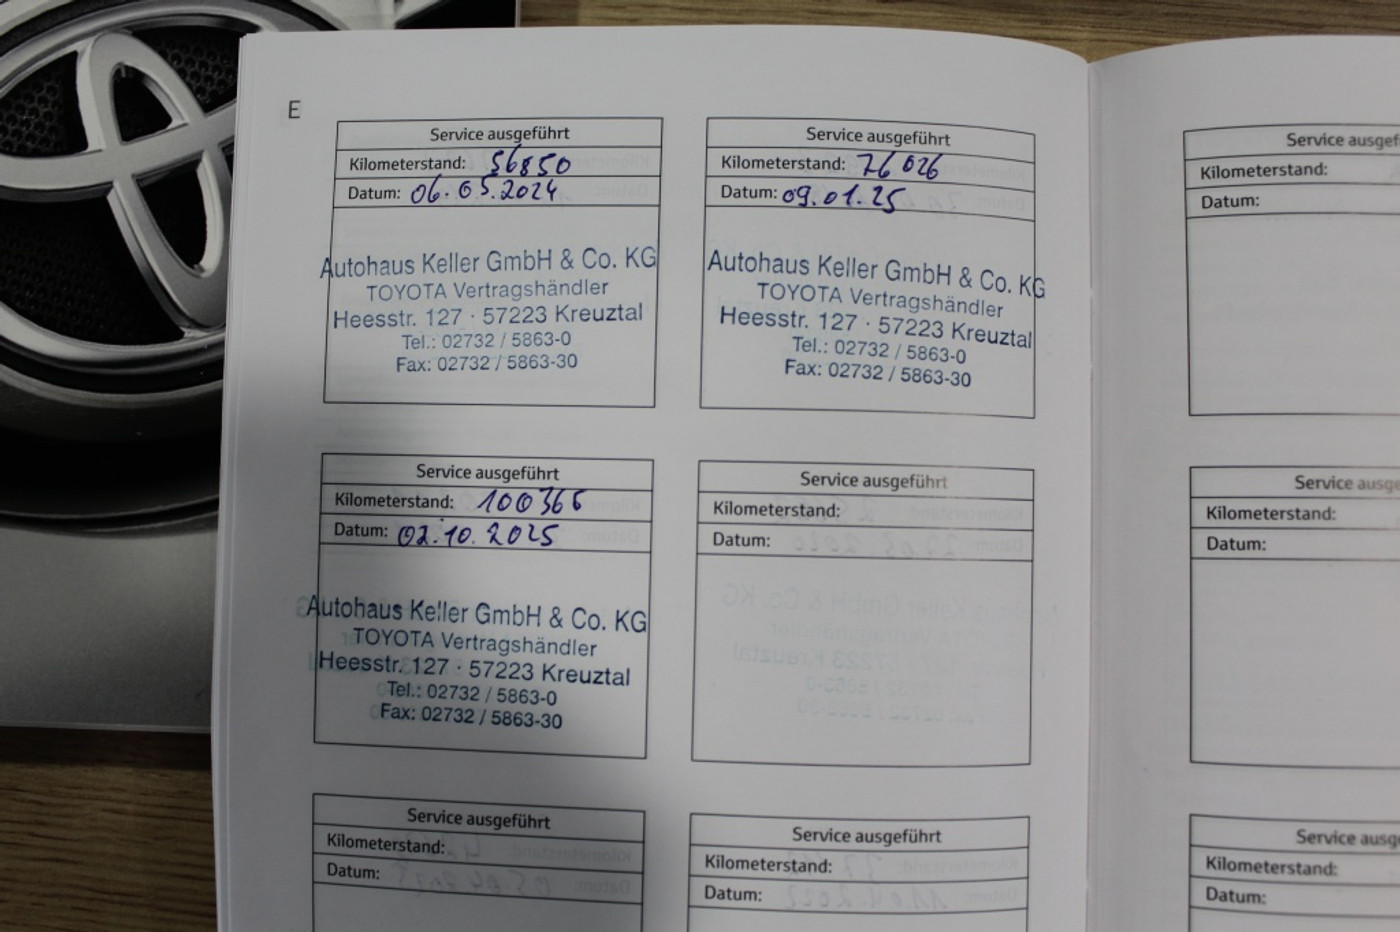 E
Service ausgeführt
Kilometerstand: 56850
Datum: 06.05.2024
Autohaus Keller GmbH & Co. KG
TOYOTA Vertragshändler
Heesstr. 127 · 57223 Kreuztal
Tel.: 02732 / 5863-0
Fax: 02732 / 5863-30
Service ausgeführt
Kilometerstand: 76026
Datum: 09.01.25
Autohaus Keller GmbH & Co. KG
TOYOTA Vertragshändler
Heesstr. 127 · 57223 Kreuztal
Tel.: 02732 / 5863-0
Fax: 02732 / 5863-30
Service ausgeführt
Kilometerstand: 100366
Datum: 02.10.2025
Autohaus Keller GmbH & Co. KG
TOYOTA Vertragshändler
Heesstr. 127 · 57223 Kreuztal
Tel.: 02732 / 5863-0
Fax: 02732 / 5863-30
Service ausgeführt
Kilometerstand:
Datum:
Service ausgeführt
Kilometerstand:
Datum:
Service ausgeführt
Kilometerstand:
Datum:
Service ausgef
Kilometerstand:
Datum:
Service ausge
Kilometerstand:
Datum:
Service ausg
Kilometerstand:
Datum: